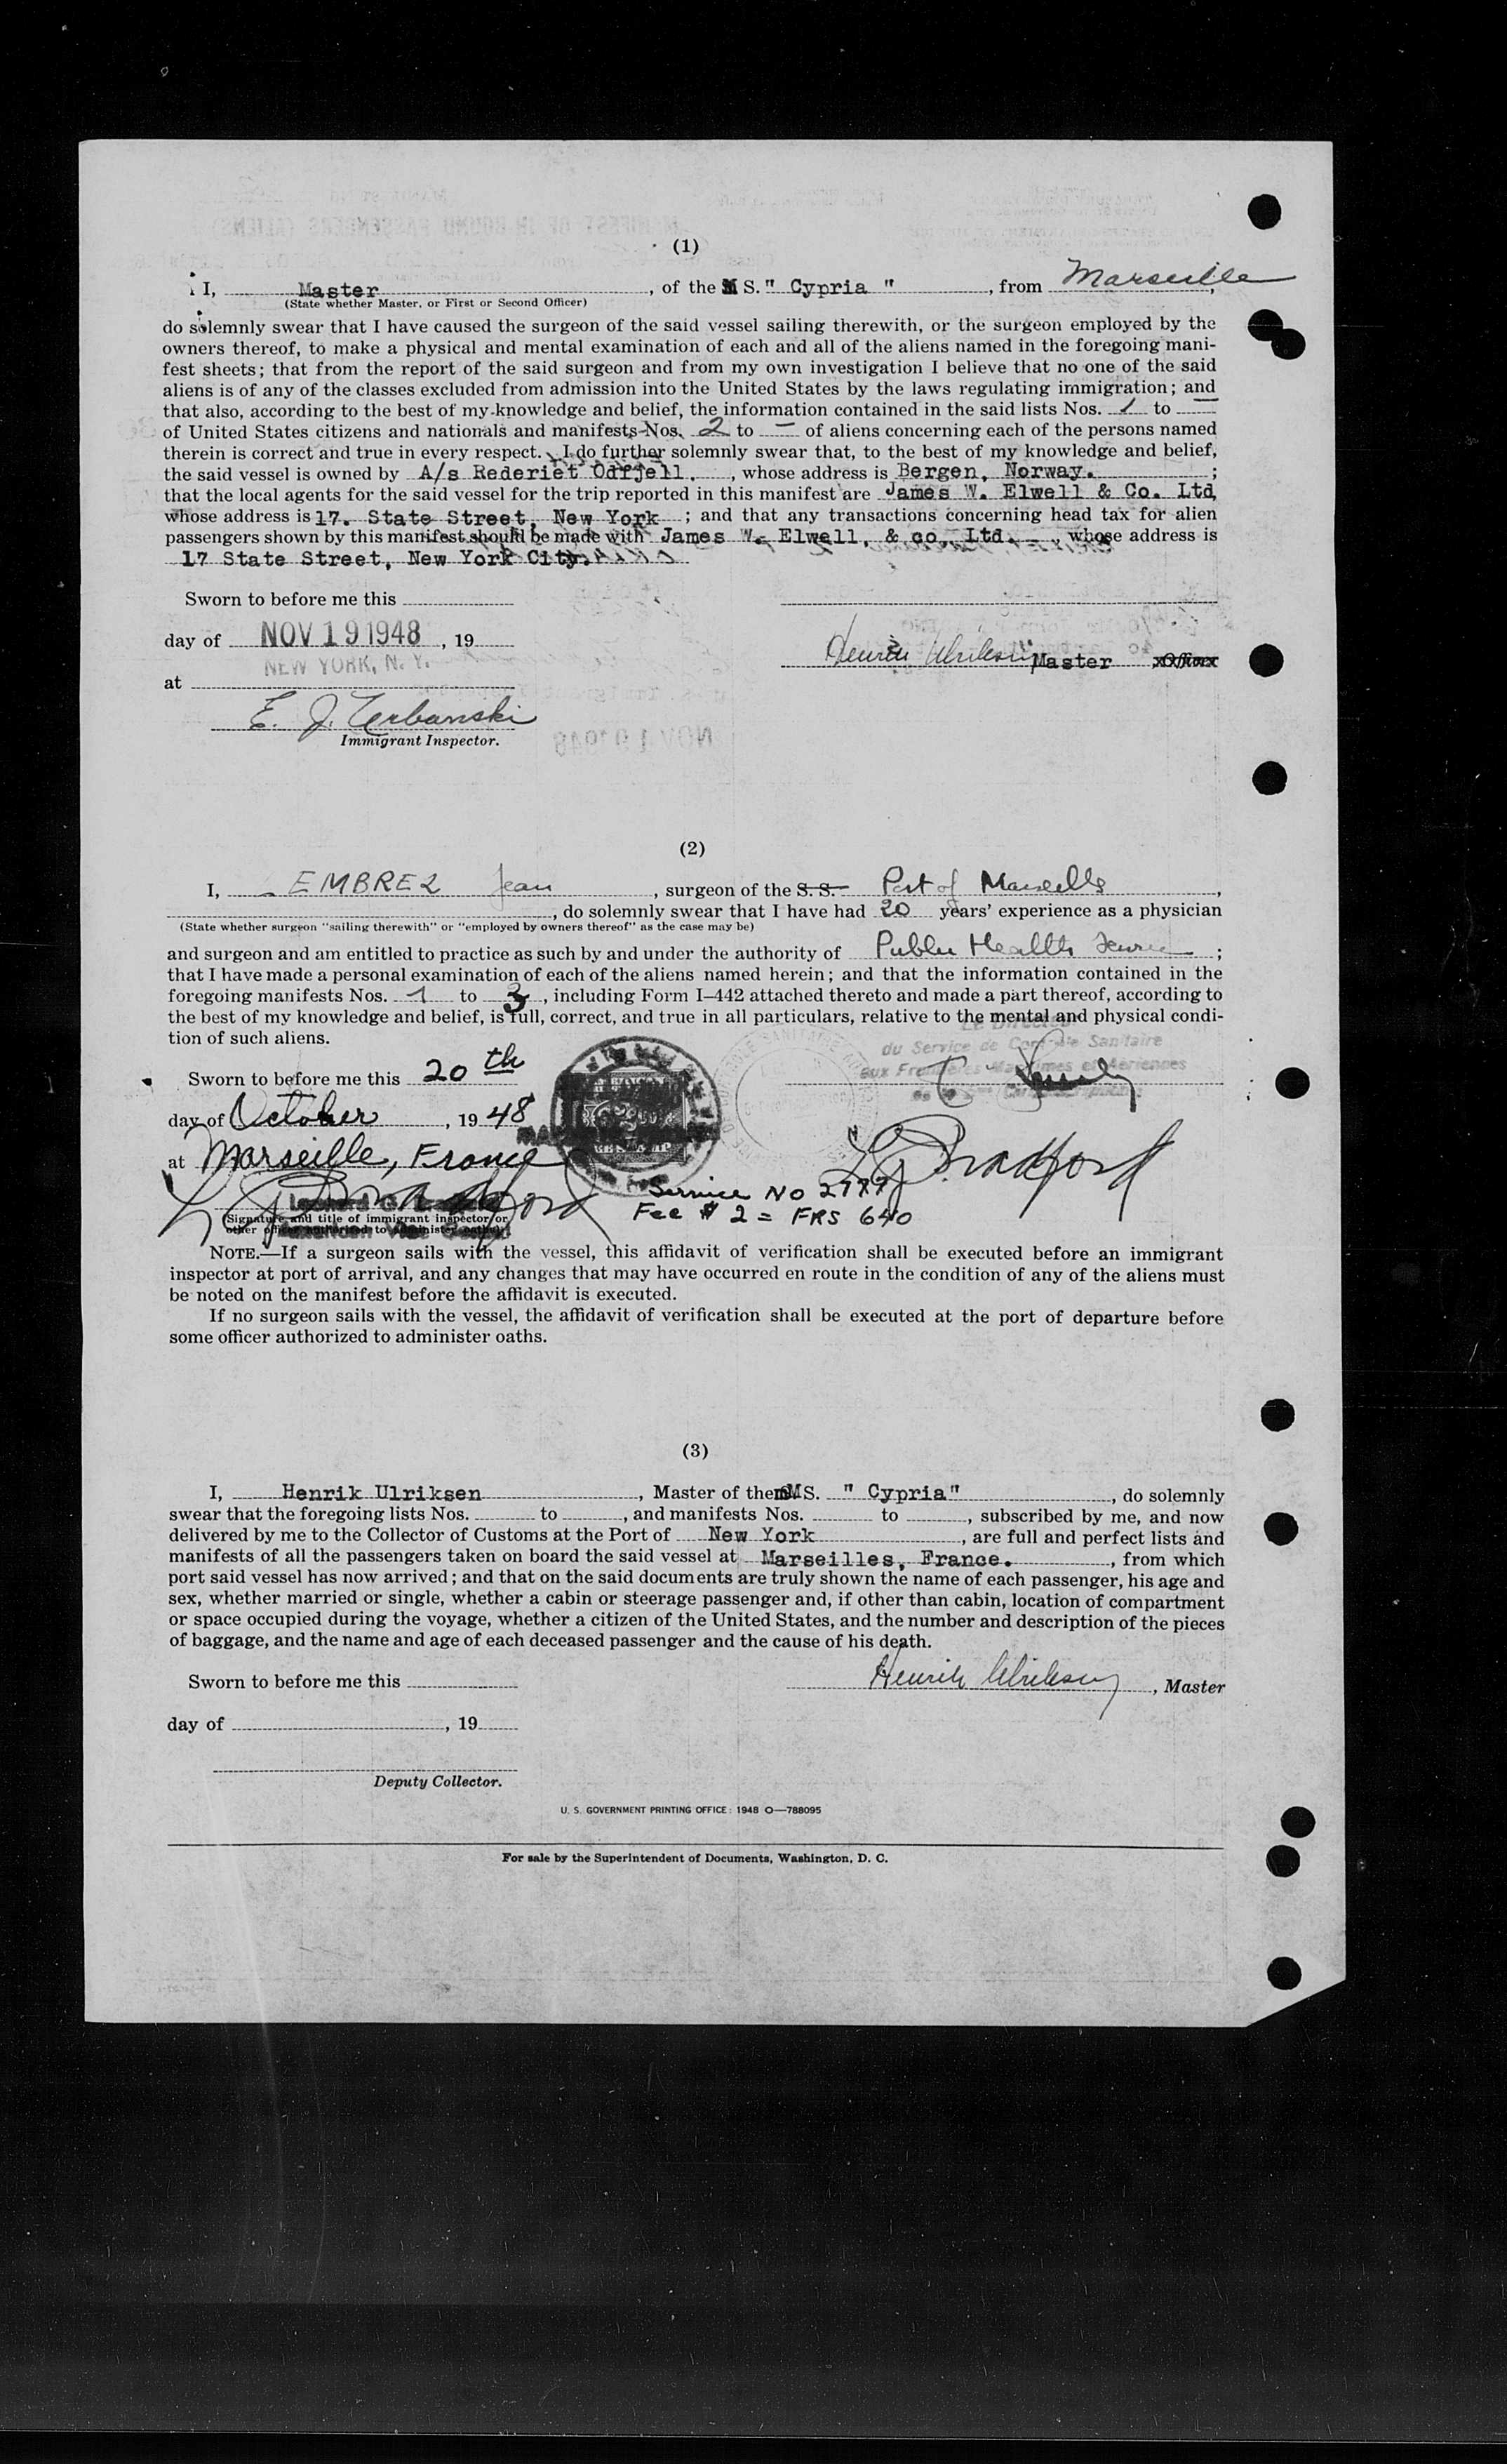 (1)
I, Master, of the M S. " Cypria ", from Marseille,
(State whether Master, or First or Second Officer)
do solemnly swear that I have caused the surgeon of the said vessel sailing therewith, or the surgeon employed by the
owners thereof, to make a physical and mental examination of each and all of the aliens named in the foregoing mani-
fest sheets; that from the report of the said surgeon and from my own investigation I believe that no one of the said
aliens is of any of the classes excluded from admission into the United States by the laws regulating immigration; and
that also, according to the best of my knowledge and belief, the information contained in the said lists Nos. 1 to —
of United States citizens and nationals and manifests Nos. 2 to — of aliens concerning each of the persons named
therein is correct and true in every respect. I do further solemnly swear that, to the best of my knowledge and belief,
the said vessel is owned by A/s Rederiet Odfjell., whose address is Bergen, Norway. ;
that the local agents for the said vessel for the trip reported in this manifest are James W. Elwell & Co. Ltd,
whose address is 17. State Street, New York ; and that any transactions concerning head tax for alien
passengers shown by this manifest should be made with James W. Elwell, & co, Ltd. , whose address is
17 State Street, New York City.
Sworn to before me this
day of NOV 19 1948, 19
NEW YORK, N. Y.
Henrik Ulriksen, Master xOfficerx
at
E. J. Urbanski
Immigrant Inspector.
NOV 19 1948
(2)
I, EMBREZ Jean, surgeon of the S. S. Port of Marseille,
, do solemnly swear that I have had 20 years' experience as a physician
(State whether surgeon "sailing therewith" or "employed by owners thereof" as the case may be)
and surgeon and am entitled to practice as such by and under the authority of Public Health Service ;
that I have made a personal examination of each of the aliens named herein; and that the information contained in the
foregoing manifests Nos. 1 to 3, including Form I–442 attached thereto and made a part thereof, according to
the best of my knowledge and belief, is full, correct, and true in all particulars, relative to the mental and physical condi-
tion of such aliens.
Le Directeur
du Service de Contrôle Sanitaire
aux Frontières Maritimes et Aériennes
Sworn to before me this 20th
day of October, 19 48
at Marseille, France
L G Bradford
L G Bradford
Service No
Fee $ 2 = FRS 640
(Signature and title of immigrant inspector or
other officer authorized to administer oaths)
NOTE.—If a surgeon sails with the vessel, this affidavit of verification shall be executed before an immigrant
inspector at port of arrival, and any changes that may have occurred en route in the condition of any of the aliens must
be noted on the manifest before the affidavit is executed.
If no surgeon sails with the vessel, the affidavit of verification shall be executed at the port of departure before
some officer authorized to administer oaths.
(3)
I, Henrik Ulriksen, Master of the M S. " Cypria", do solemnly
swear that the foregoing lists Nos. to , and manifests Nos. to , subscribed by me, and now
delivered by me to the Collector of Customs at the Port of New York, are full and perfect lists and
manifests of all the passengers taken on board the said vessel at Marseilles, France. , from which
port said vessel has now arrived; and that on the said documents are truly shown the name of each passenger, his age and
sex, whether married or single, whether a cabin or steerage passenger and, if other than cabin, location of compartment
or space occupied during the voyage, whether a citizen of the United States, and the number and description of the pieces
of baggage, and the name and age of each deceased passenger and the cause of his death.
Sworn to before me this
Henrik Ulriksen, Master
day of , 19
Deputy Collector.
U. S. GOVERNMENT PRINTING OFFICE: 1948 O—788095
For sale by the Superintendent of Documents, Washington, D. C.